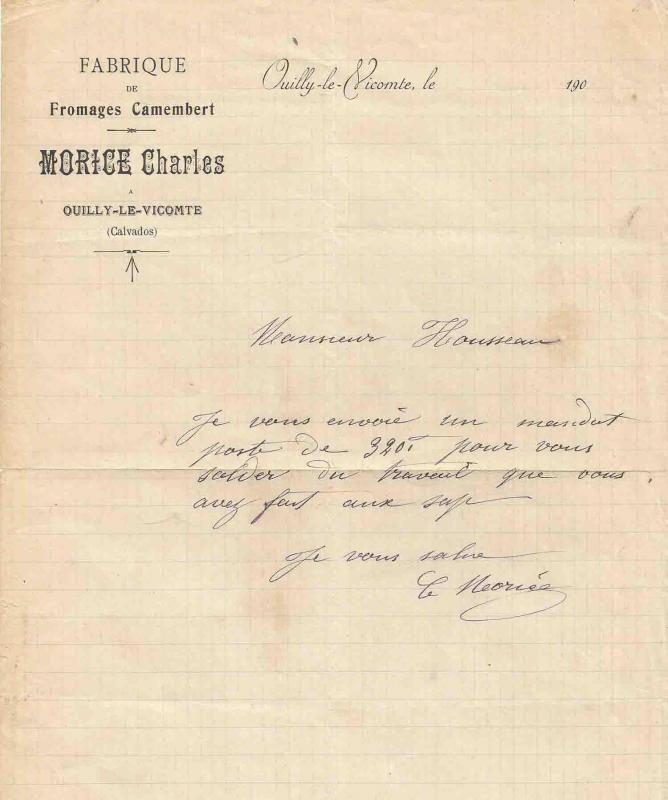 FABRIQUE
DE
Fromages Camembert
MORICE Charles
A
OUILLY-LE-VICOMTE
(Calvados)
Ouilly-le-Vicomte, le 190
Monsieur Housseau
Je vous envoie un mandat
poste de 320f pour vous
solder du travail que vous
avez fait aux sap
Je vous salue
C Morice